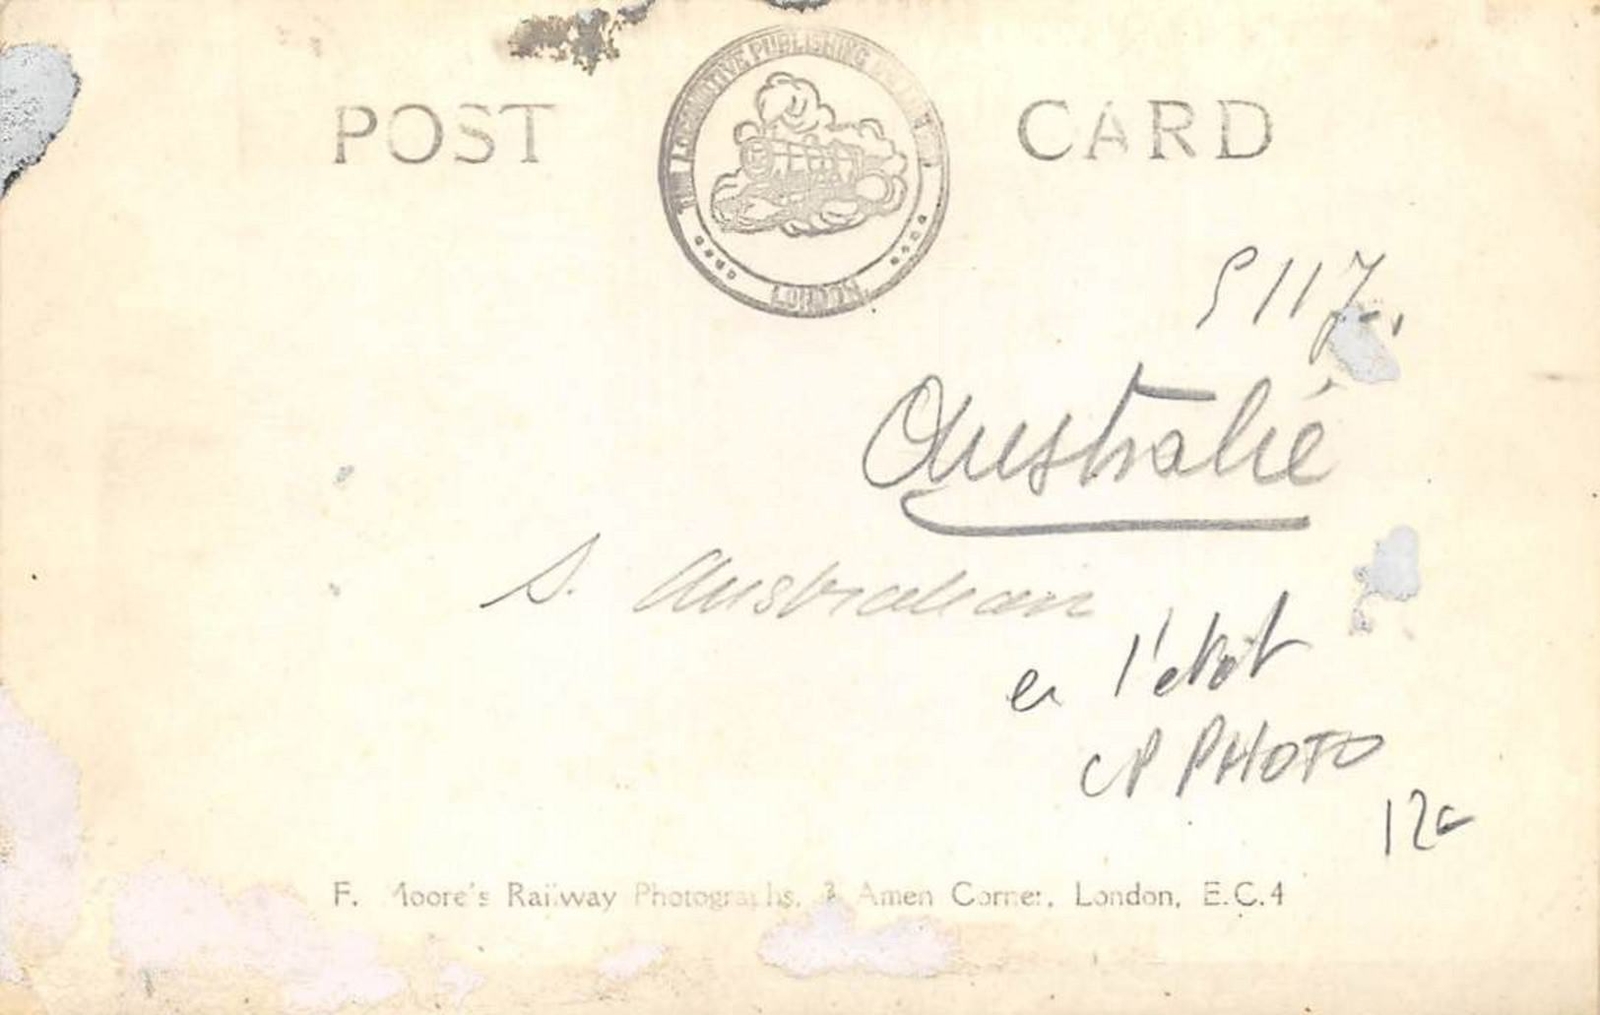 POST CARD
THE LOCOMOTIVE PUBLISHING
LONDON
S 117.
Australie
S. Australian
en l'etat
CP PHOTO
12€
F. Moore's Railway Photographs, 3 Amen Corner, London, E.C.4